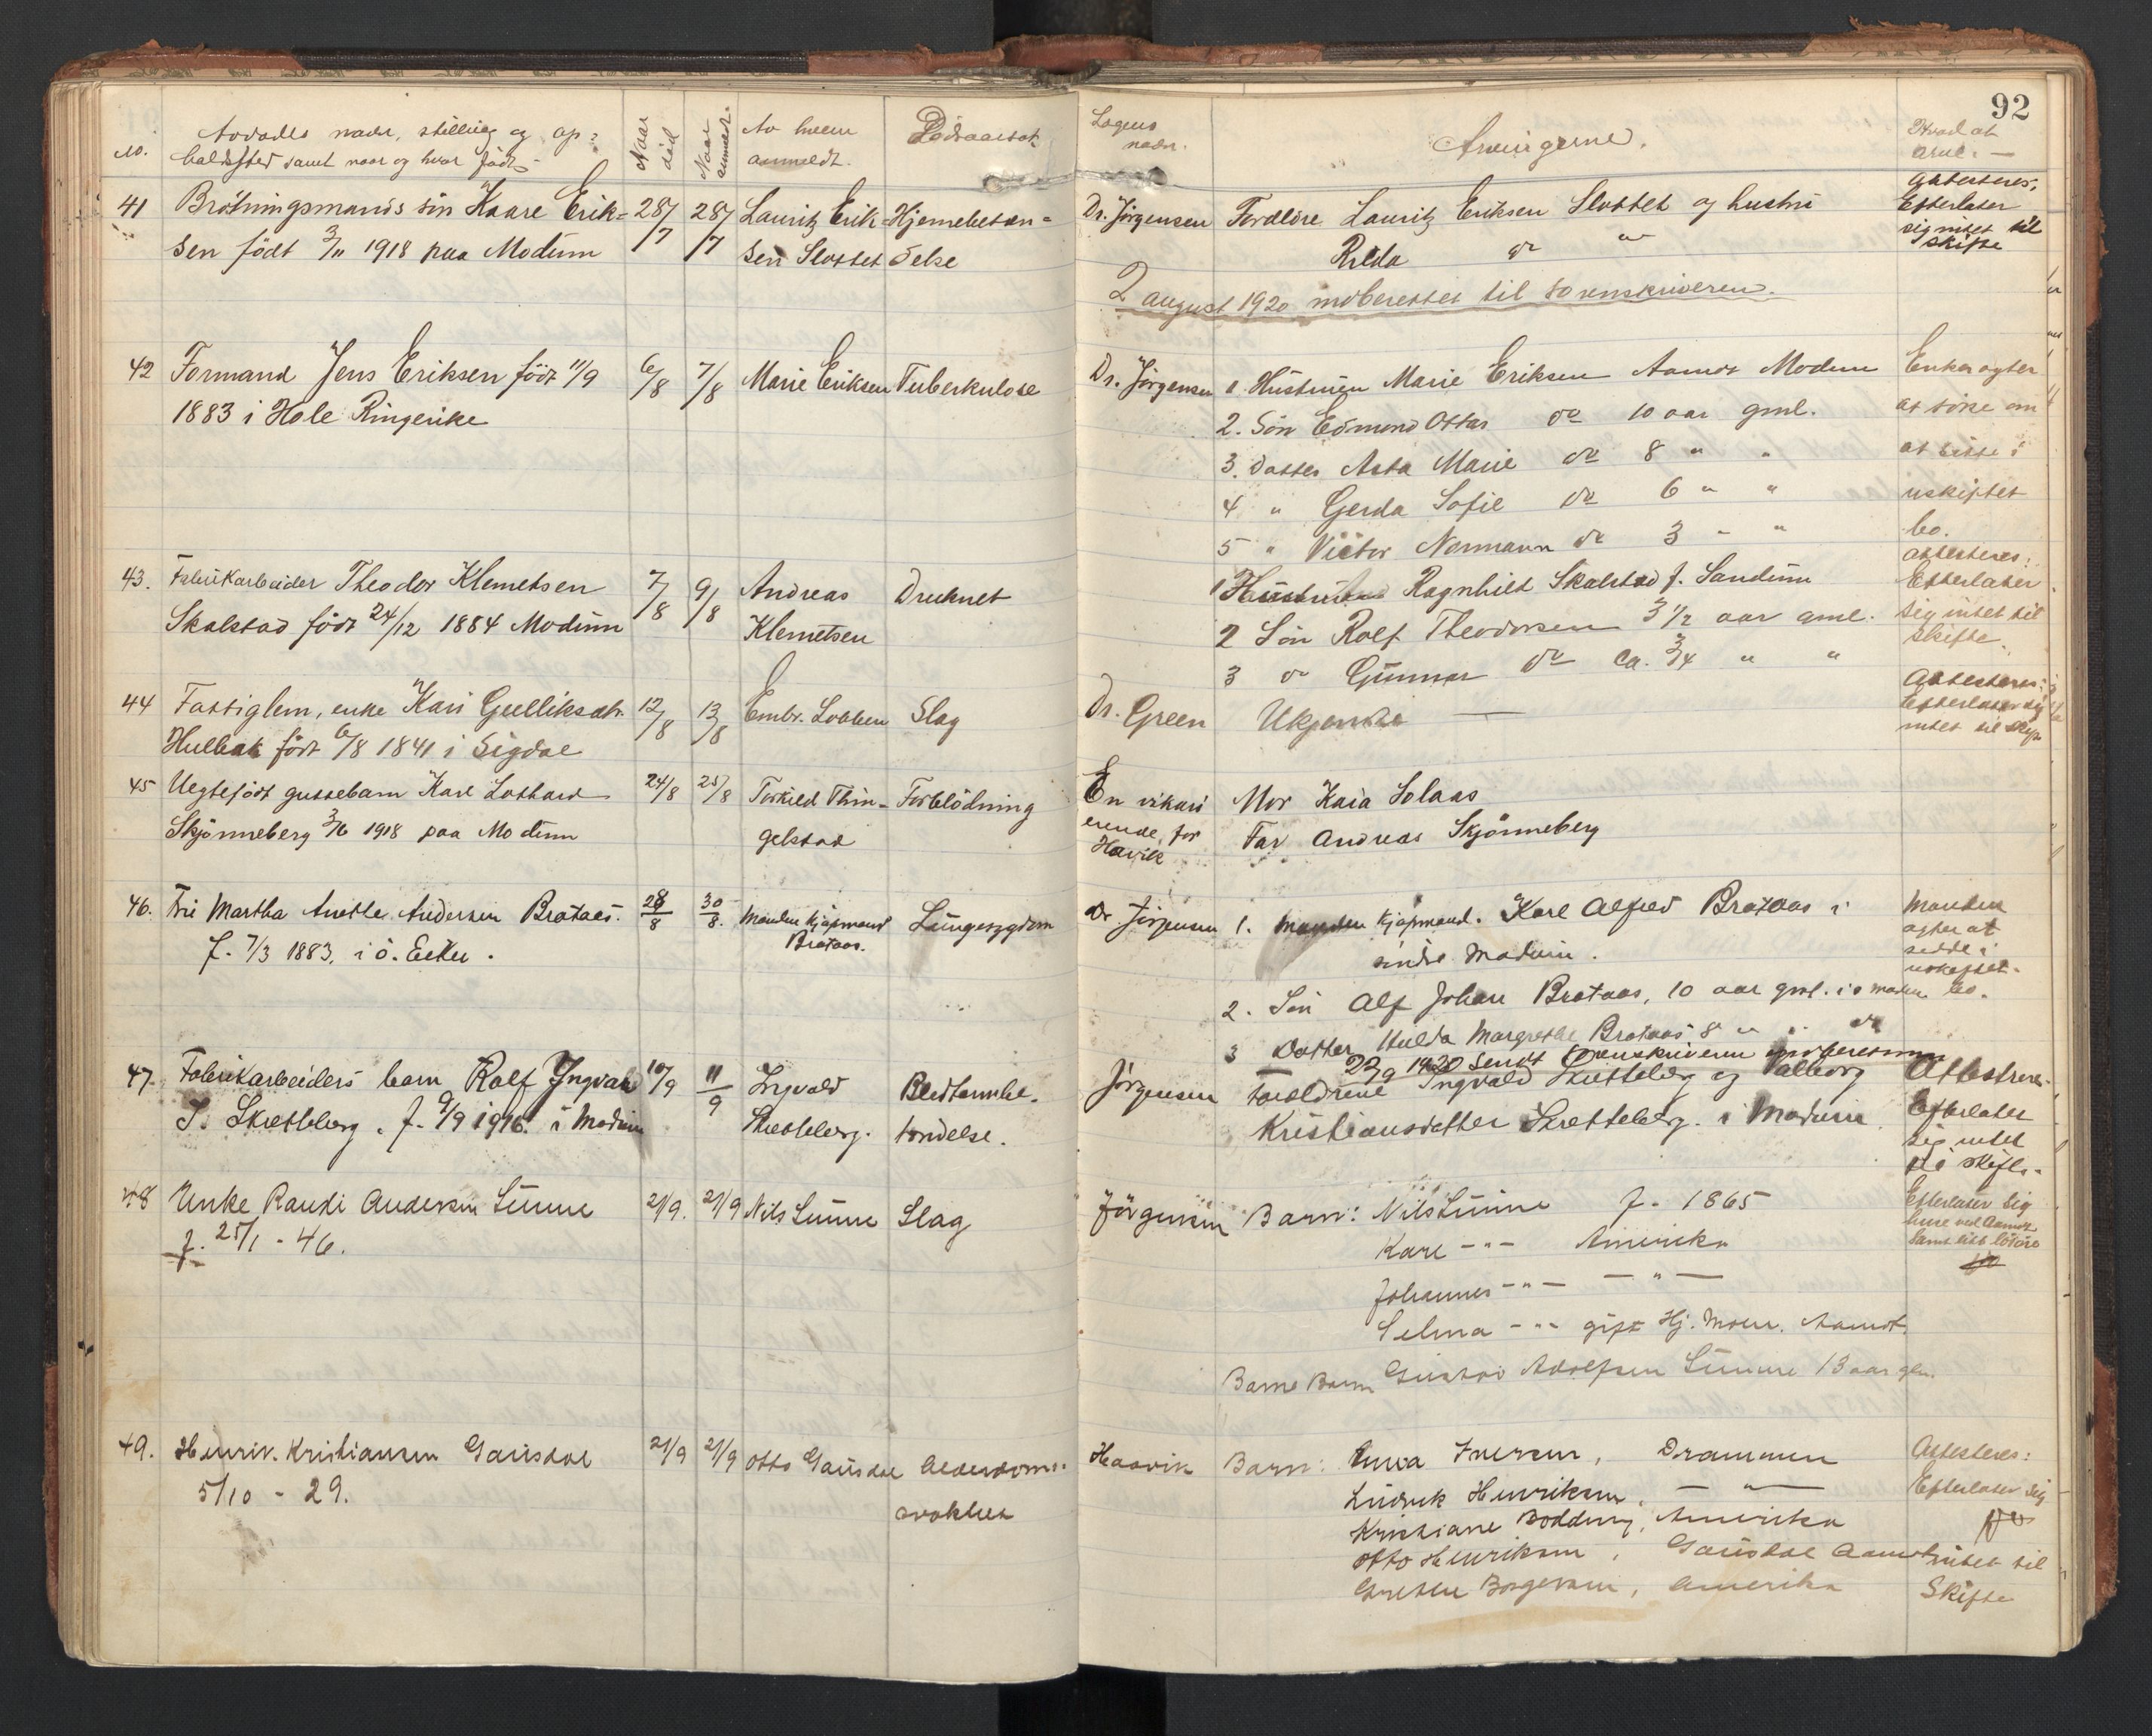 92
No.
Avdødes navn, stilling og op-
holdssted samt naar og hvor født
Naar død
Naar anmeldt
Av hvem
anmeldt.
Dødsaarsak
Lægens
navn.
Arvingerne.
Hvad at
arve. —
41 Brötningsmands sön Kaare Erik= 28/7 28/7 Lauritz Erik= Hjernebetæn= Dr. Jörgensen Foreldre Lauritz Eriksen Slottet og hustru
sen födt 3/11 1918 paa Modum sen Slottet delse
do "
Attesteres.
Efterlater
sig intet til
skifte
2 august 1920 indberettet til sorenskriveren.
42 Formand Jens Eriksen födt 11/9 6/8 7/8 Marie Eriksen Tuberkulose Dr. Jörgensen 1. Hustruen Marie Eriksen Aamot Modum
1883 i Hole Ringerike
2. Sön Edmund Ottar do 10 aar gml.
3. Datter Asta Marie do 8 " "
4 " Gerda Sofie do 6 " "
5 " Victor Normann do 3 " "
Enken agter
at söke om
at sitte i
uskiftet
bo.
43. Fabrikarbeider Theodor Klemetsen 7/8 9/8 Andreas Druknet 1 Hustruen Ragnhild Skalstad f. Sandum
Skalstad födt 24/12 1884 Modum Klemetsen 2 Sön Rolf Theodorsen 3 1/2 aar gml.
3 do Gunnar do ca. 3/4 " "
attesteres:
Efterlater
sig intet til
skifte.
44 Fattiglem, enke Kari Gulliksdtr. 12/8 13/8 Embr. Lobben Slag Dr. Green Ukjendte —
Hulbak födt 6/8 1841 i Sigdal
Attesteres:
Efterlater sig
intet til skifte
45 Uegtefödt guttebarn Karl Lothard 24/8 25/8 Torkild Thin- Forblödning En vikari Mor Kaia Solaas
Skjönneberg 3/6 1918 paa Modum gelstad erende for Far Andreas Skjönneberg
Havik
46. Fru Martha Anette Andersen Brataas. 28/8 30/8. Manden kjøpmand Lungesygdom Dr Jörgensen 1. Manden kjøpmand. Karl Alfred Brataas i
f. 7/3 1883. i ö. Eiker. Brataas. söndre Modum.
2. Sön Alf Johan Brataas, 10 aar gml. i s Modum
3 Datter Hulda Margrethe Brataas 8 " " do
Manden
agter at
sidde i
uskiftet.
bo.
22/9 1920 Sendt Sorenskriveren indberetning
47. Fabrikarbeiders barn Rolf Ingvald 10/9 11/9 Ingvald Blindtarmbe- Jörgensen Foreldrene Ingvald Skretteberg og Valborg
S. Skretteberg. f. 9/9 1916. i Modum Skretteberg. tændelse. Kristiansdatter Skretteberg. i Modum
Attesteres.
Efterlater
sig intet
til skifte.
48 Enke Randi Andersen Simme 21/9. 21/9 Nils Simme Slag Jörgensen Barn: Nils Simme f. 1865
f. 25/1 - 46.
Karl -"- Amerika
Johannes -"- -"-
Selma -"- gift Hj. Moen. Aamot.
Barne Barn Gustav Adolfsen Simme 13 aar gl.
Efterlater sig
huse ved Aamot
samt litt lösöre
49. Henriv. Kristiansen Gausdal 21/9 21/9 Otto Gausdal Alderdoms- Haavik Barn: Anna Iversen, Drammen
5/10 - 29. svakhet
Ludvik Henriksen, -"-
Kristiane Bodding, Amerika
Otto Henriksen, Gausdal Aamot
Borgersen, Amerika
Attesteres:
Efterlater sig
intet til
Skifte